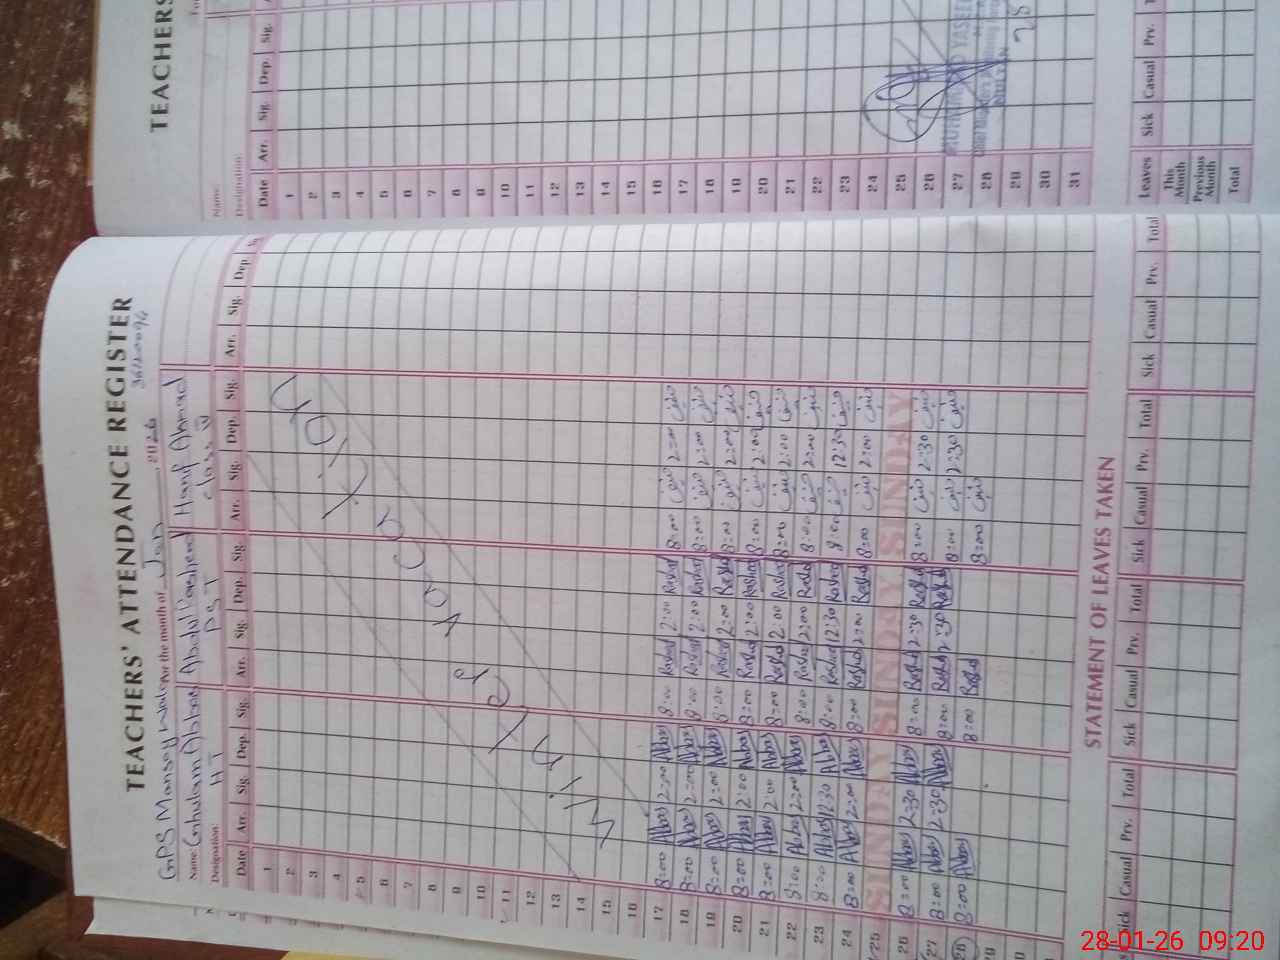 TEACHERS' ATTENDANCE REGISTER
36120094
GPS For the month of Jan 2026
Name Ghulam Abbas Abdul Rasheed Hanif Ahmad
Designation: HT PST class IV
Date Arr. Sig. Dep. Sig. Arr. Sig. Dep. Sig. Arr. Sig. Dep. Sig. Arr. Sig. Dep.
1
2
3
4
5
6
7
8
9
10
11
12
13
14
15
16
Winter Vacation
17 8:00 Abbas 2:00 Abbas 8:00 Rashed 2:00 Rashed 8:00 حنیف 2:00 حنیف
18 8:00 Abbas 2:00 Abbas 8:00 Rashed 2:00 Rashed 8:00 حنیف 2:00 حنیف
19 8:00 Abbas 2:00 Abbas 8:00 Rashed 2:00 Rashed 8:00 حنیف 2:00 حنیف
20 8:00 Abbas 2:00 Abbas 8:00 Rashed 2:00 Rashed 8:00 حنیف 2:00 حنیف
21 8:00 Abbas 2:00 Abbas 8:00 Rashed 2:00 Rashed 8:00 حنیف 2:00 حنیف
22 8:00 Abbas 2:00 Abbas 8:00 Rashed 2:00 Rashed 8:00 حنیف 2:00 حنیف
23 8:00 Abbas 12:30 Abbas 8:00 Rashed 12:30 Rashed 8:00 حنیف 12:30 حنیف
24 8:00 Abbas 2:00 Abbas 8:00 Rashed 2:00 Rashed 8:00 حنیف 2:00 حنیف
25 SUNDAY SUNDAY SUNDAY
26 8:00 Abbas 2:30 Abbas 8:00 Rashed 2:30 Rashed 8:00 حنیف 2:30 حنیف
27 8:00 Abbas 2:30 Abbas 8:00 Rashed 2:30 Rashed 8:00 حنیف 2:30 حنیف
28 8:00 Abbas 8:00 Rashed 8:00 حنیف
29
STATEMENT OF LEAVES TAKEN
Sick Casual Prv. Total Sick Casual Prv. Total Sick Casual Prv. Total Sick Casual Prv. Total
TEACHERS
Name:
Designation:
Date Arr. Sig. Dep. Sig.
1
2
3
4
5
6
7
8
9
10
11
12
13
14
15
16
17
18
19
20
21
22
23
24
25
26
27
28
29
30
31
YASEEN
Leaves Sick Casual Prv.
This Month
Previous Month
Total
28-01-26 09:20